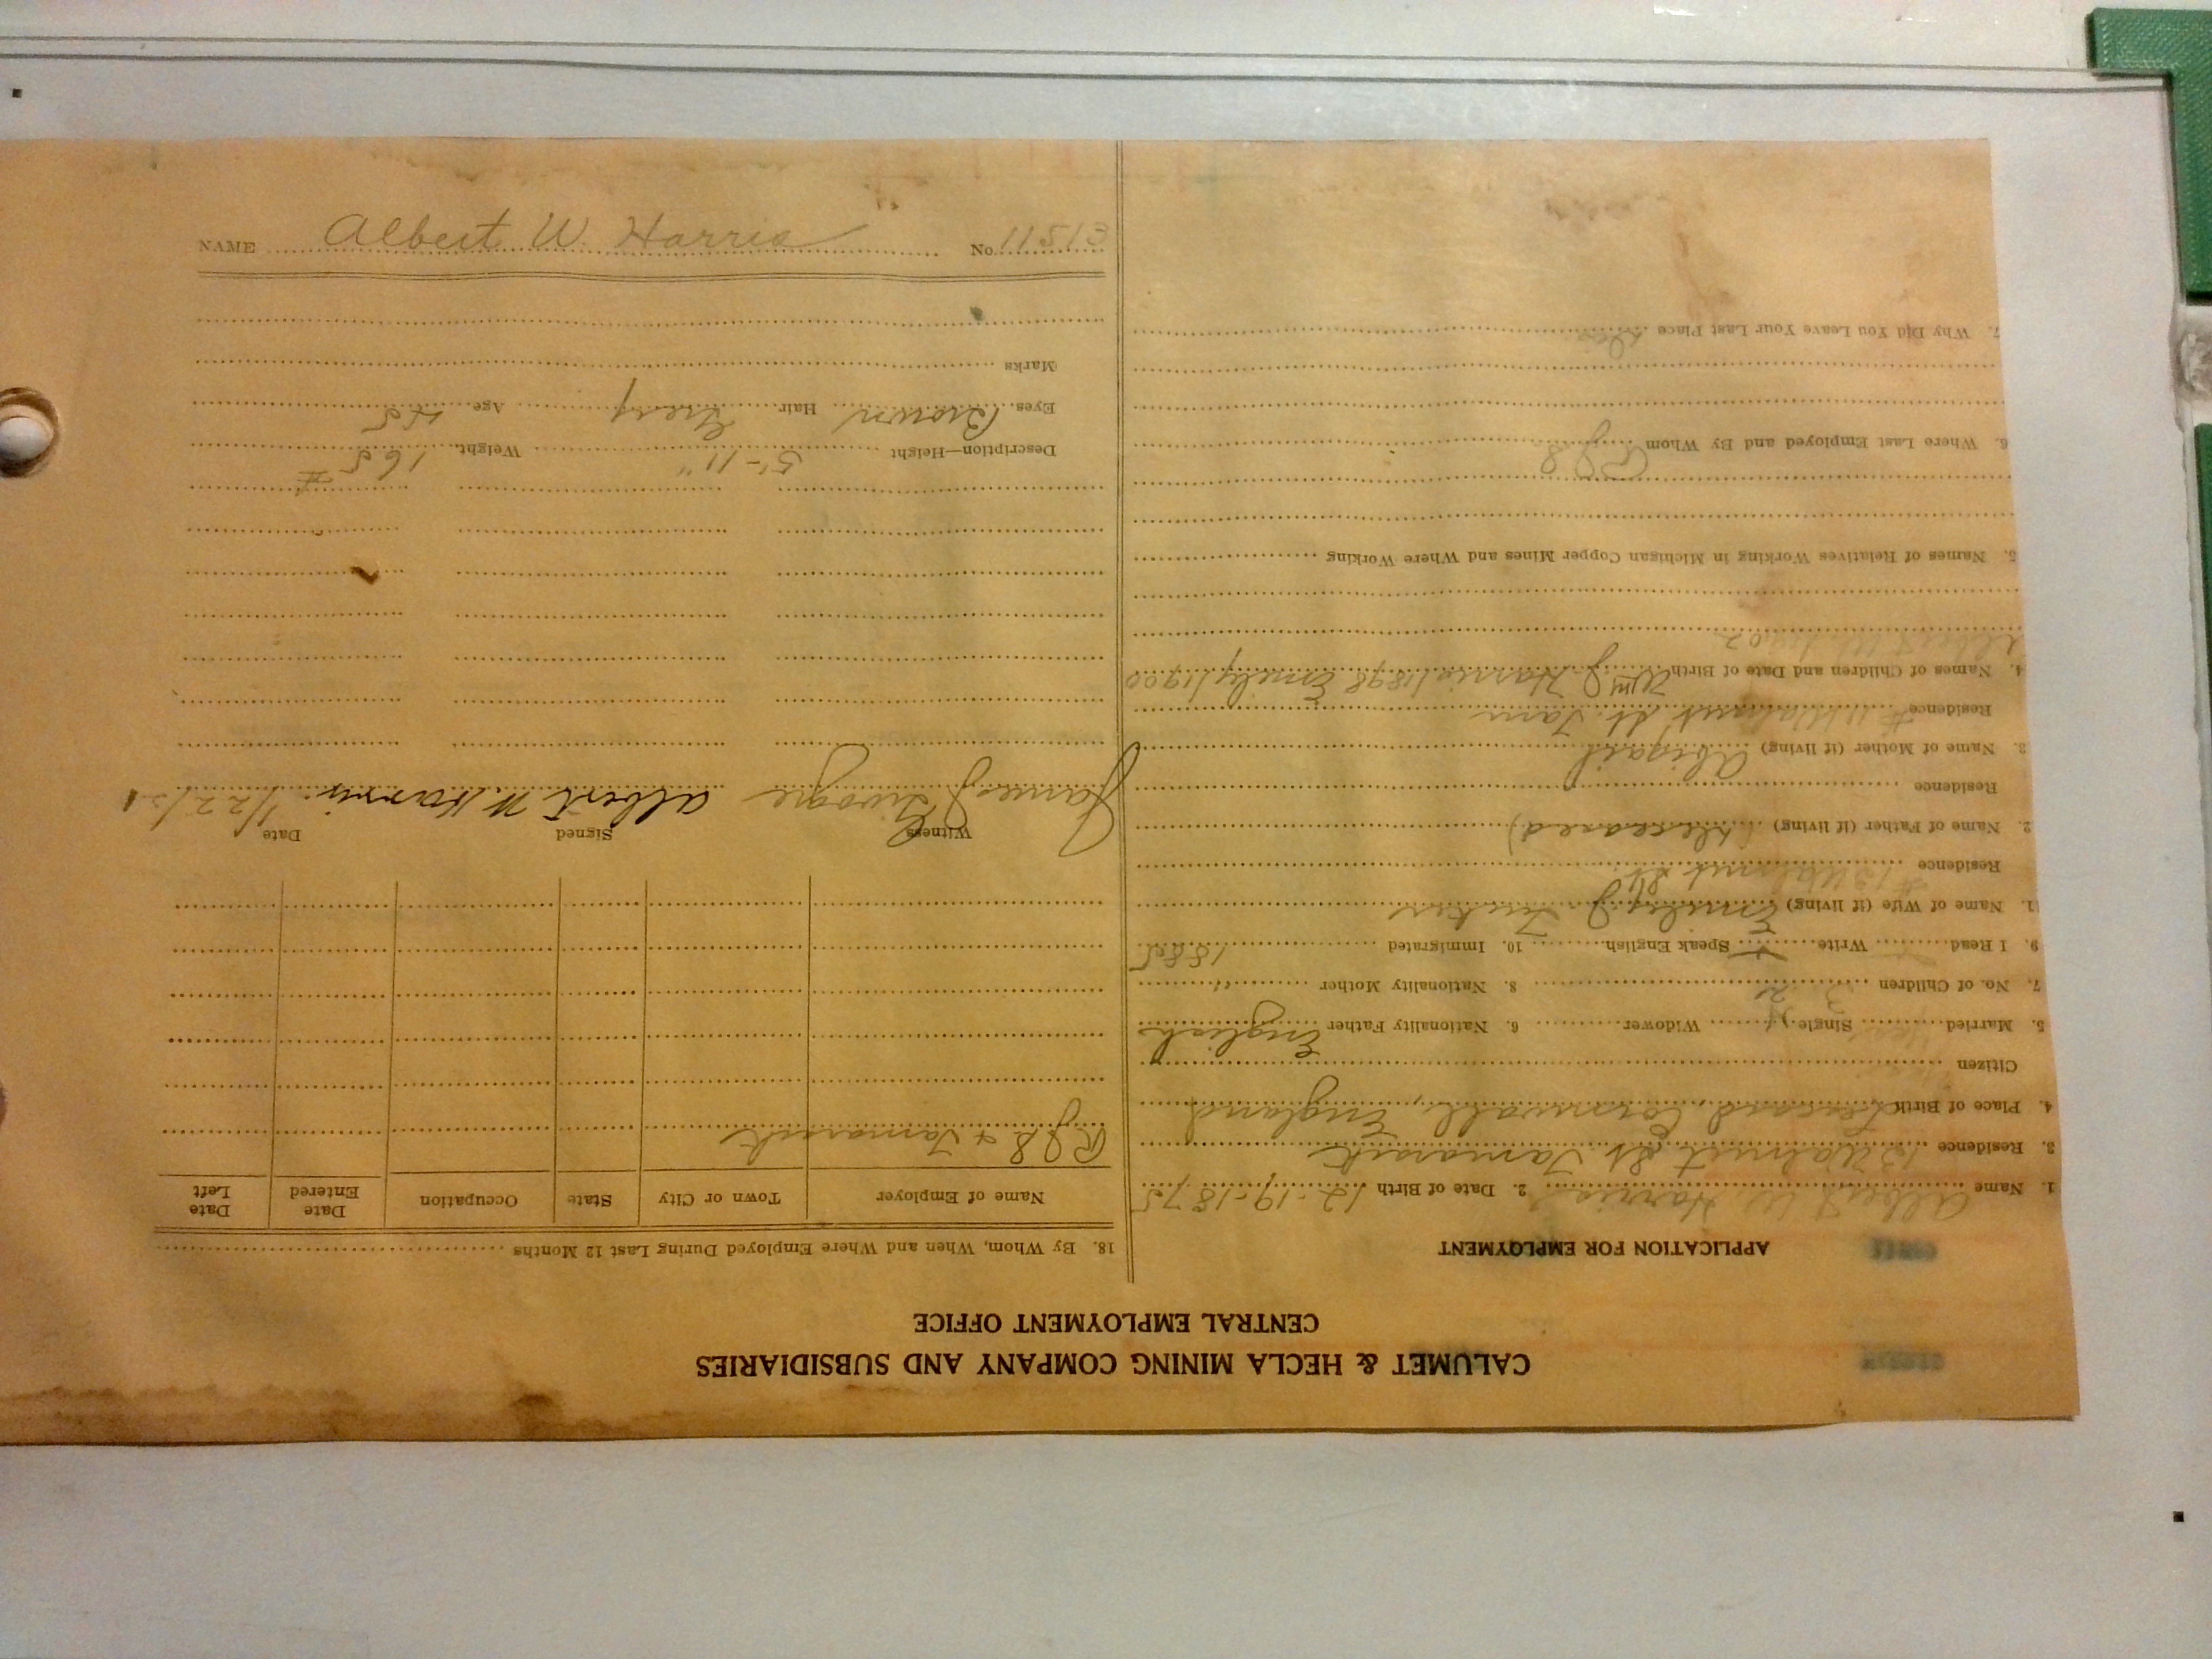 CALUMET & HECLA MINING COMPANY AND SUBSIDIARIES
CENTRAL EMPLOYMENT OFFICE
APPLICATION FOR EMPLOYMENT
1. Name Albert W Harris 2. Date of Birth 12-19-1875
3. Residence 13 Walnut St. Tamarack
4. Place of Birth Cornwall, England
Citizen
5. Married Single Widower 6. Nationality Father English
7. No. of Children 3 8. Nationality Mother "
9. I Read Write Speak English 10. Immigrated 1885
11. Name of Wife (if living) Emily J.
Residence #13 Walnut St.
2. Name of Father (if living) (Deceased)
Residence
3. Name of Mother (if living) Abigail
Residence #11 Walnut St. Tam
4. Names of Children and Date of Birth Wm J. Harris 1898 Emily 1900
Albert W. 1902
5. Names of Relatives Working in Michigan Copper Mines and Where Working
6. Where Last Employed and By Whom
7. Why Did You Leave Your Last Place
18. By Whom, When and Where Employed During Last 12 Months
Name of Employer Town or City State Occupation Date Entered Date Left
& Tamarack
Witness Signed Date
James J Albert W. Harris 1/22/21
Description—Height 5'-11" Weight 165 #
Eyes Brown Hair Grey Age 45
Marks
NAME Albert W. Harris No. 11513